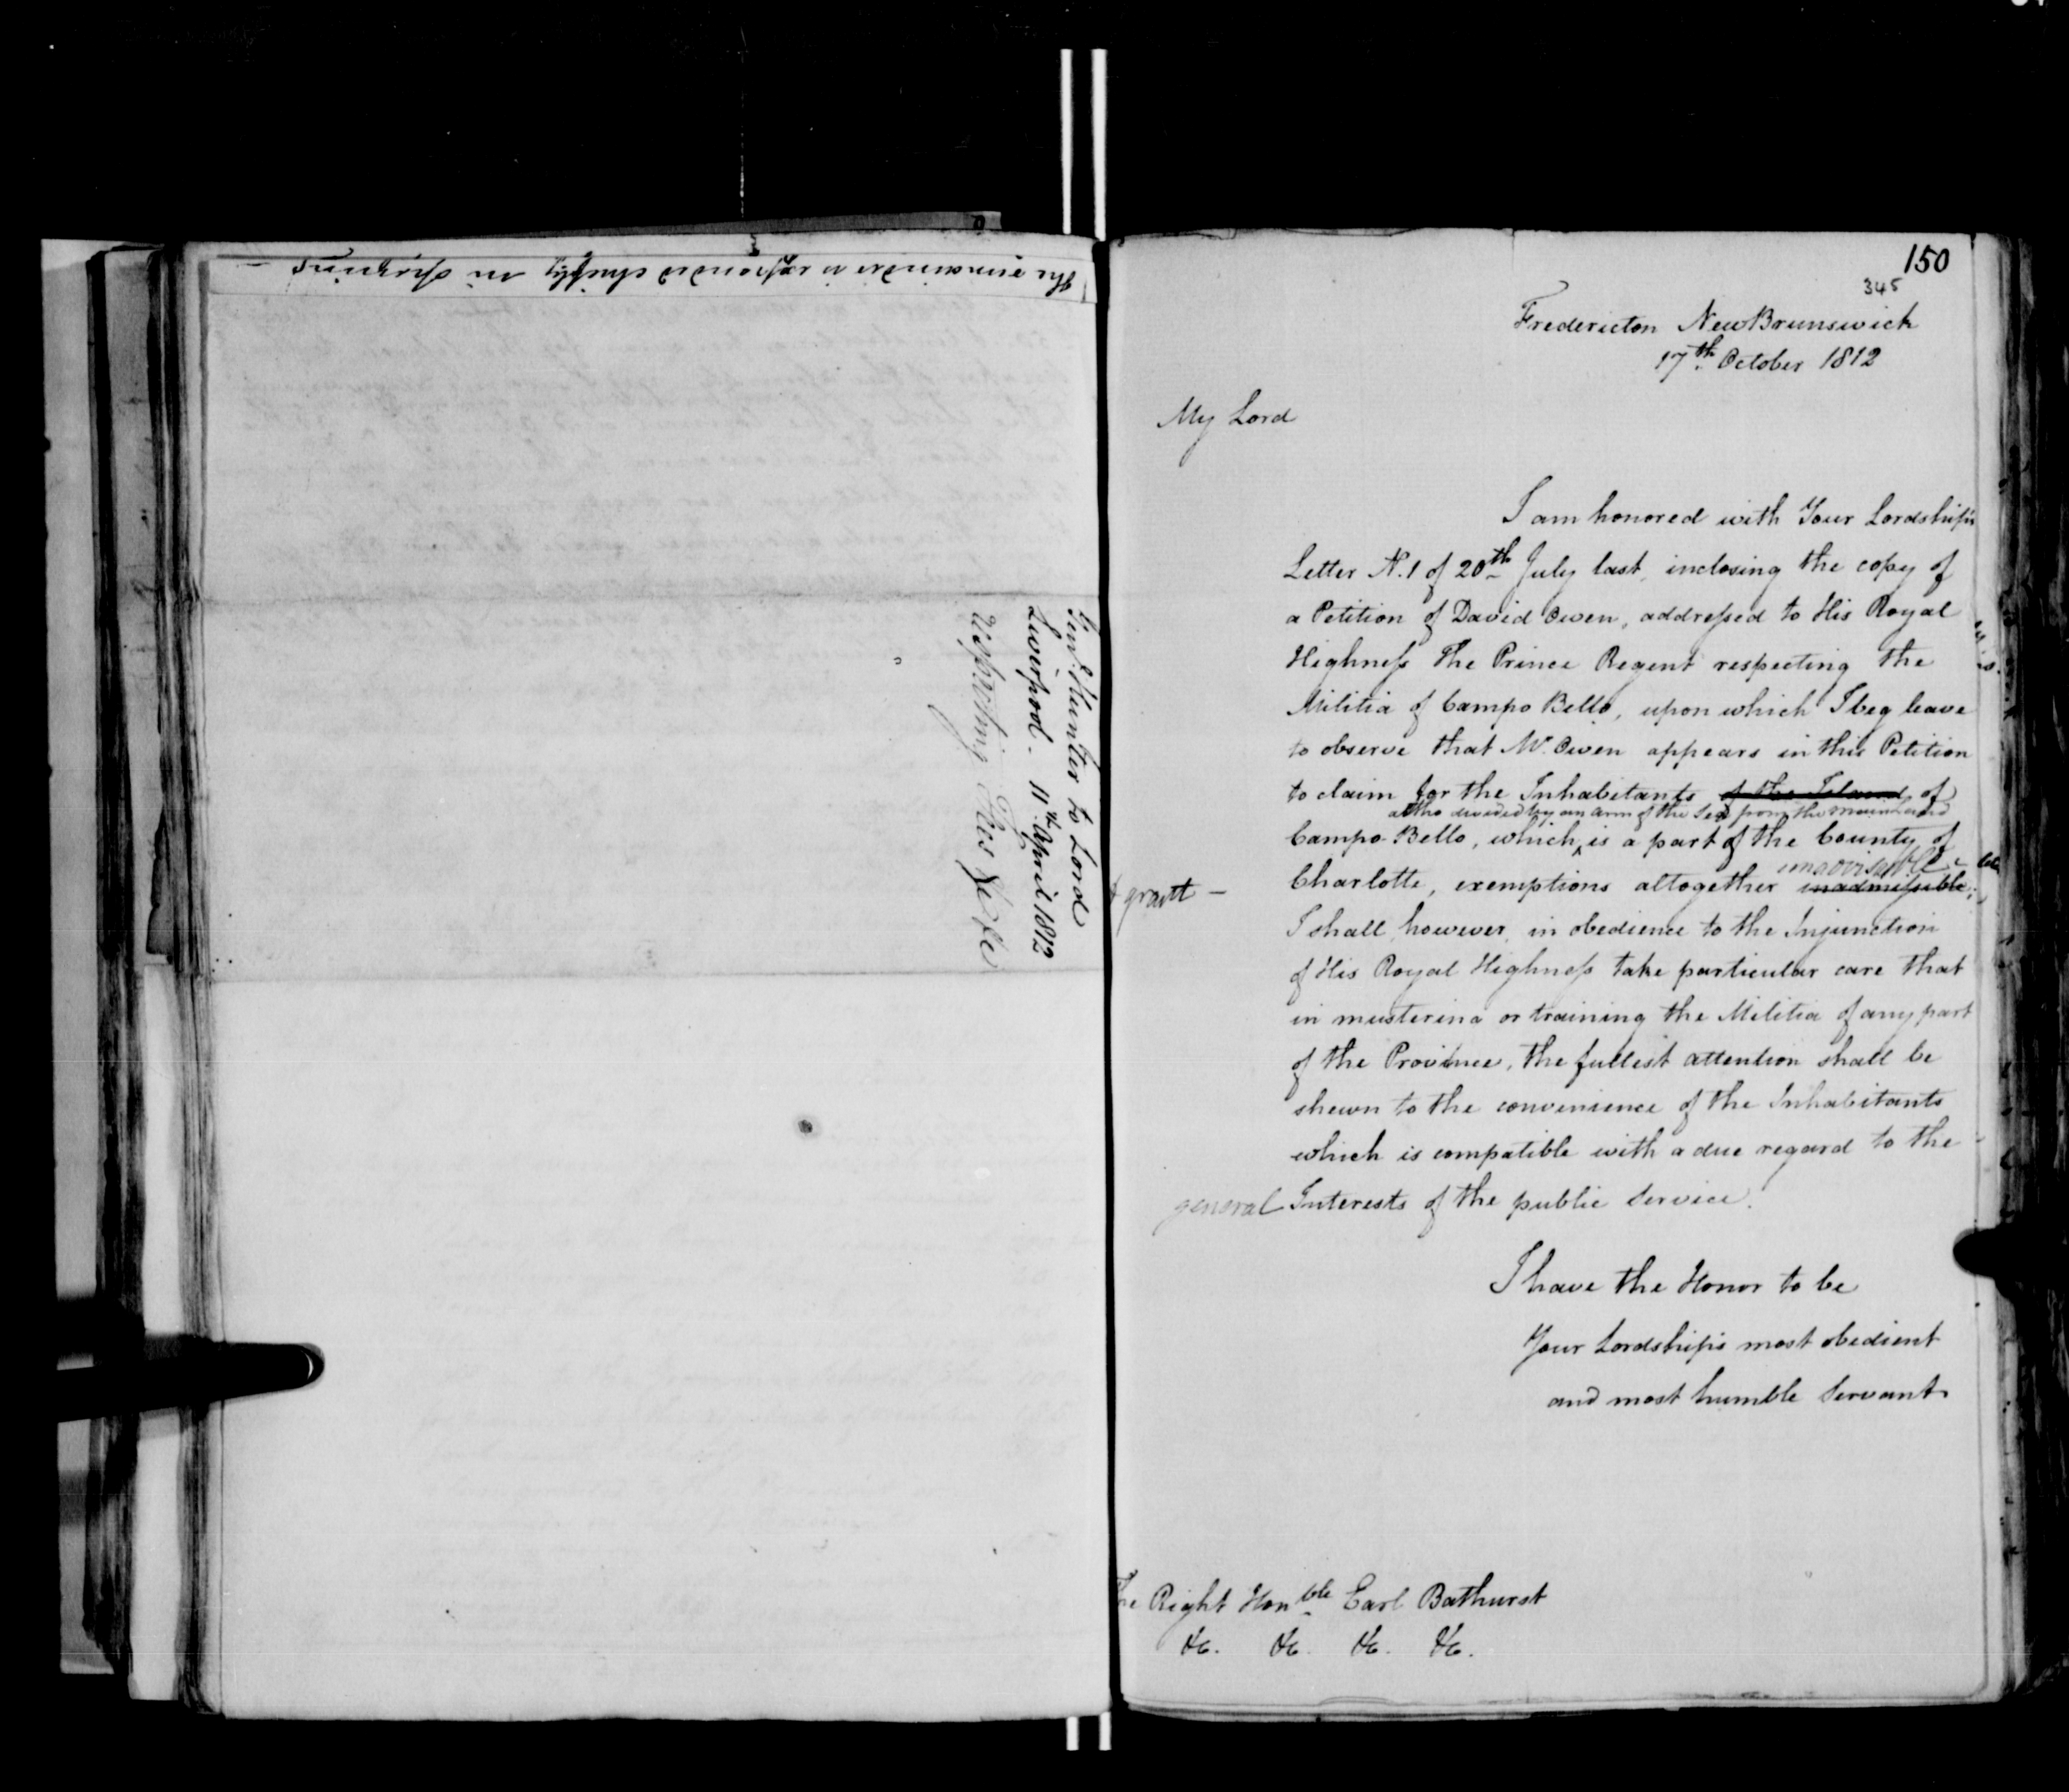 The remainder is expended chiefly in
Genl. Hunter to Lord
Liverpool. 11th April 1812
respecting his
150
345
Fredericton New Brunswick
17th October 1812
My Lord
I am honored with Your Lordship's
Letter N.1 of 20th July last, inclosing the copy of
a Petition of David Owen, addressed to His Royal
Highness The Prince Regent respecting the
Militia of Campo Bello, upon which I beg leave
to observe that Mr. Owen appears in this Petition
to claim for the Inhabitants of the Island of
altho divided by an arm of the Sea from the main Land
Campo Bello, which is a part of the County of
unadvisable to
grant -
Charlotte, exemptions altogether inadmissible;
I shall, however, in obedience to the Injunction
of His Royal Highness take particular care that
in mustering or training the Militia of any part
of the Province, the fullest attention shall be
shewn to the convenience of the Inhabitants
which is compatible with a due regard to the
general Interests of the public Service.
I have the Honor to be
Your Lordship's most obedient
and most humble Servant
The Right Honble Earl Bathurst
&c. &c. &c. &c.